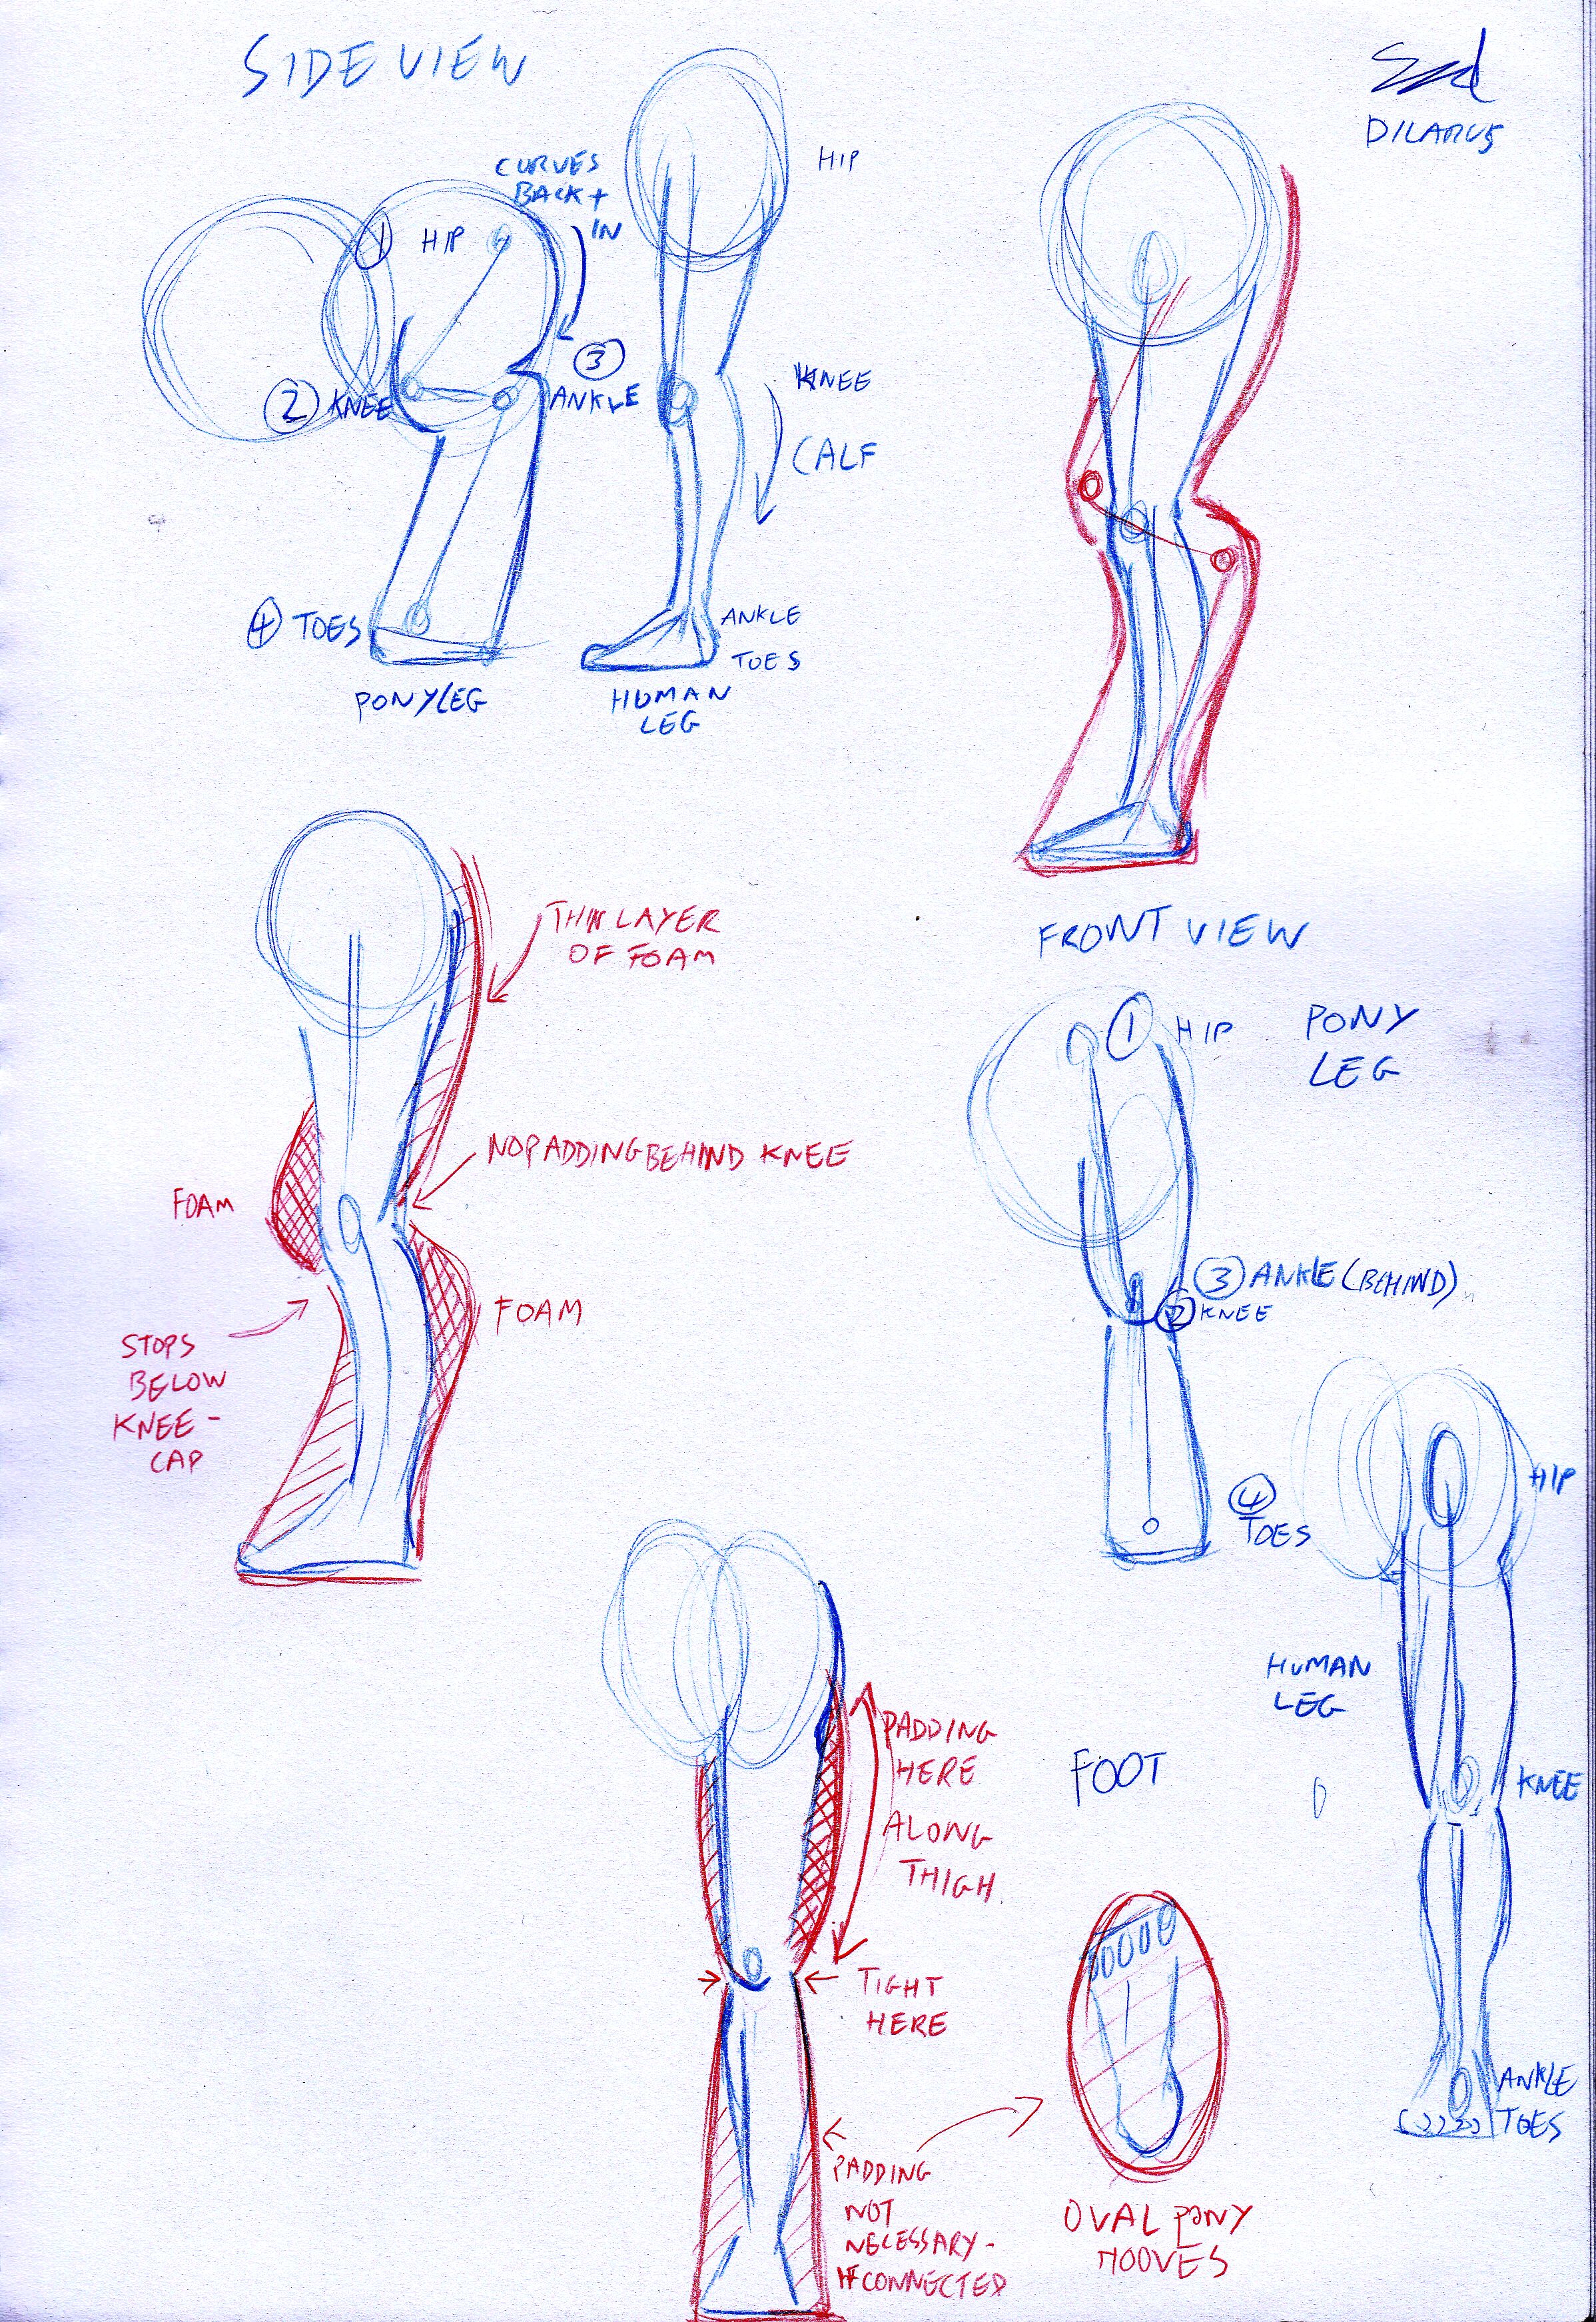 SIDE VIEW
DILARUS
CURVES
BACK +
IN
HIP
1 HIP
3
2 KNEE
ANKLE
KNEE
CALF
4 TOES
ANKLE
TOES
PONY LEG
HUMAN
LEG
THIN LAYER
OF FOAM
NO PADDING BEHIND KNEE
FOAM
FOAM
STOPS
BELOW
KNEE-
CAP
FRONT VIEW
1 HIP
PONY
LEG
3 ANKLE (BEHIND)
2 KNEE
4
TOES
HIP
HUMAN
LEG
KNEE
ANKLE
TOES
PADDING
HERE
ALONG
THIGH
TIGHT
HERE
PADDING
NOT
NECESSARY-
IF CONNECTED
FOOT
OVAL PONY
HOOVES